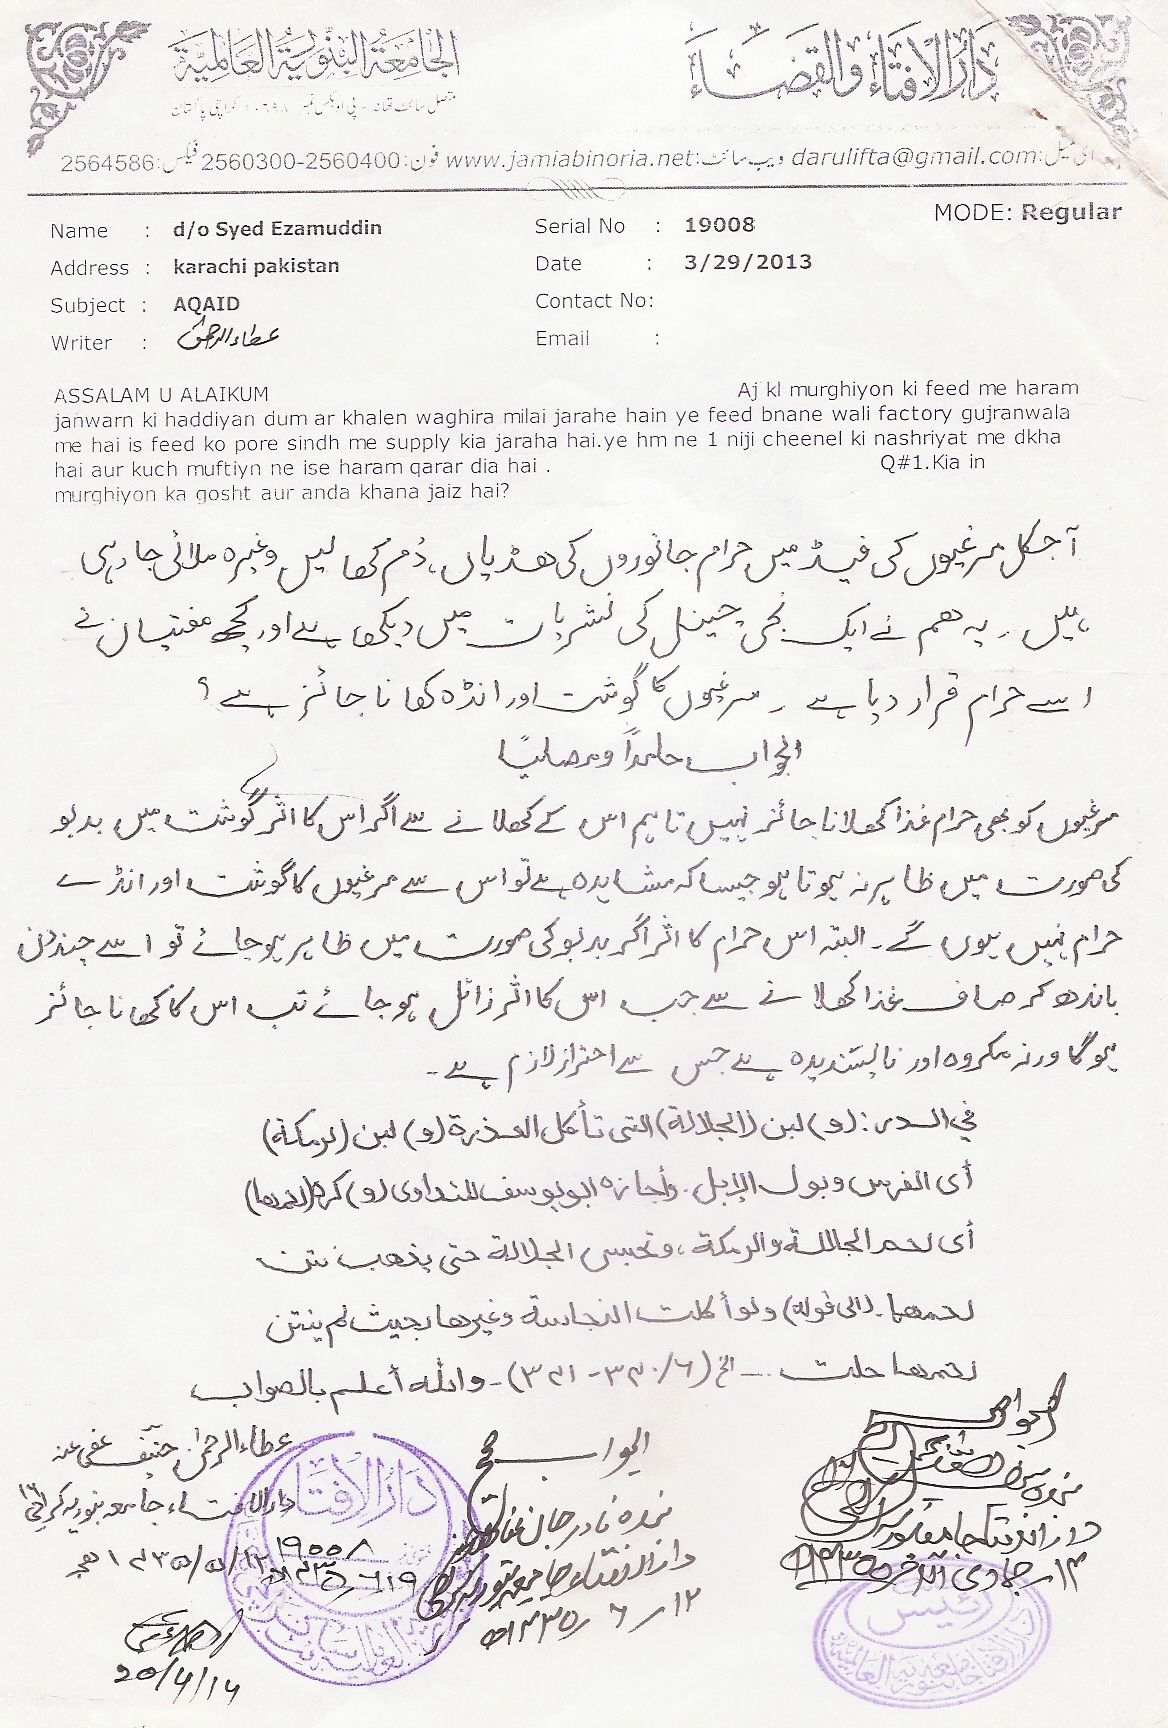 دَارُ الإِفتَاء وَالقَضَاء
الجَامِعَةُ البِنُّورِيَّةُ العَالَمِيَّة
متصل سائٹ تھانہ کراچی پاکستان
ای میل: darulifta@gmail.com ویب سائٹ: www.jamiabinoria.net فون: 2560300-2560400 فیکس: 2564586
MODE: Regular
Name : d/o Syed Ezamuddin Serial No : 19008
Address : karachi pakistan Date : 3/29/2013
Subject : AQAID Contact No:
Writer : عطاء الرحمن Email :
ASSALAM U ALAIKUM Aj kl murghiyon ki feed me haram
janwarn ki haddiyan dum ar khalen waghira milai jarahe hain ye feed bnane wali factory gujranwala
me hai is feed ko pore sindh me supply kia jaraha hai.ye hm ne 1 niji cheenel ki nashriyat me dkha
hai aur kuch muftiyn ne ise haram qarar dia hai . Q#1.Kia in
murghiyon ka gosht aur anda khana jaiz hai?
آجکل مرغیوں کی فیڈ میں حرام جانوروں کی ھڈیاں، دُم کھالیں وغیرہ ملائی جارہی
ہیں۔ یہ ھم نے ایک نجی چینل کی نشریات میں دیکھا ہے اور کچھ مفتیان نے
اسے حرام قرار دیا ہے ۔ مرغیوں کا گوشت اور انڈہ کھانا جائز ہے ؟
الجواب حامداً ومصلیًا
مرغیوں کو بھی حرام غذا کھلانا جائز نہیں تاہم اس کے کھلانے سے اگر اس کا اثر گوشت میں بدبو
کی صورت میں ظاہر نہ ہوتا ہو جیسا کہ مشاہدہ ہے تو اس سے مرغیوں کا گوشت اور انڈے
حرام نہیں ہوں گے۔ البتہ اس حرام کا اثر اگر بدبو کی صورت میں ظاہر ہوجائے تو اسے چند دن
باندھ کر صاف غذا کھلانے سے جب اس کا اثر زائل ہوجائے تب اس کا کھانا جائز
ہوگا ورنہ مکروہ اور ناپسندیدہ ہے جس سے احتراز لازم ہے ۔
في الدر: (و) لبن (الجلالة) التی تأکل العذرة (و) لبن (الرمکة)
أی الفرس وبول الإبل. وأجازه ابو یوسف للتداوی (و) کره (لحمها)
أی لحم الجلالة والرمکة، وتحبس الجلالة حتی یذهب نتن
لحمها۔ (الی قوله) ولو أکلت النجاسة وغیرها بحیث لم ینتن
لحمها حلت .... الخ (٦/٣٤٠-٣٤١)۔ واللہ أعلم بالصواب
عطاء الرحمن حنیف عفی عنہ
دارالافتاء جامعہ بنوریہ کراچی ١٦
١٩٠٠٨
الجواب صحیح
بندہ نادر جان
دارالافتاء جامعہ بنوریہ کراچی
١٢ ر ٦ ر ١٤٣٥ھ
الجواب صحیح
بندہ سیف اللہ
دارالافتاء جامعہ بنوریہ
20/4/14
دَارُ الإِفتَاء
رئیس
دارالافتاء جامعہ بنوریہ العالمیہ